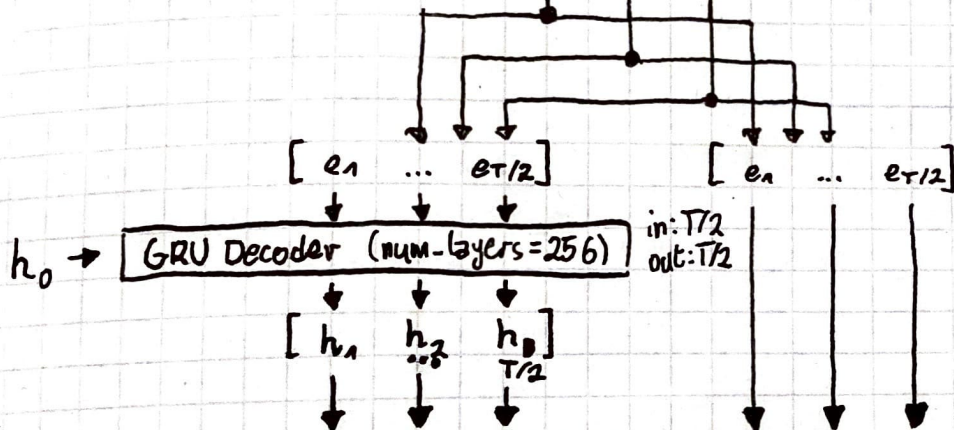 [ e1 ... eT/2 ] [ e1 ... eT/2 ]
h0 → GRU Decoder (num-layers=256) in: T/2
out: T/2
[ h1 h2 ... h T/2 ]